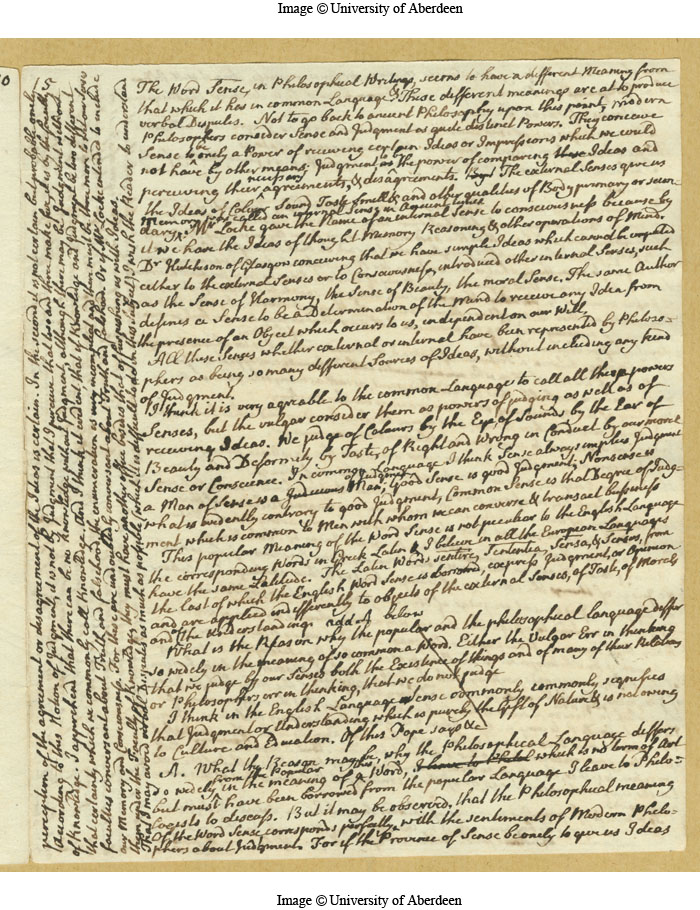 Image © University of Aberdeen
The Word Sense, in Philosophical Writings, seems to have a different Meaning from
that which it has in common Language & These different meanings are at to produce
verbal Disputes. Not to go back to ancient Philosophy upon this point, modern
Philosophers consider Sense and Judgment as quite distinct Powers. They conceive
Sense to be only a Power of receiving certain Ideas or Impressions which we could
not have by other means. Judgment to be the power of comparing these Ideas and
perceiving their necessary agreements, & disagreements. The external Senses give us
the Ideas of Colour Sound Taste Smell & and other qualities of Body primary or secon-
dary. Mr Locke gave the Name of an internal Sense to consciousness because by
it we have the Ideas of thought Memory Reasoning & other operations of Mind.
Dr Hutchison of Glasgow conceiving that we have simple Ideas which cannot be imputed
either to the external Senses or to Consciousness, introduced other internal Senses, such
as the Sense of Harmony, the Sense of Beauty, the moral Sense. The same Author
defines a Sense to be a Determination of the Mind to receive any Idea from
the presence of an Object which occurs to us, independent on our Will,
All these Senses whether external or internal have been represented by Philoso-
phers as being so many different Sources of Ideas, without including any kind
of Judgment.
I think it is very agreable to the common Language to call all these powers
Senses, but the vulgar consider them as powers of judging as well as of
receiving Ideas. We judge of Colours by the Eye, of Sounds by the Ear of
Beauty and Deformity by Taste, of Right and Wrong in Conduct by our moral
Sense or Conscience. In common Language I think Sense always implies Judgment
a Man of Sense is a Man of Judgment, Good Sense is good Judgment, Nonsense is
what is evidently contrary to good Judgment, Common Sense is that Degree of Judg-
ment which is common to Men with whom we can converse & transact bussiness
This popular Meaning of the Word Sense is not peculiar to the English Language
the corresponding Words in Greek Latin & I believe in all the European Languages
have the same Latitude. The Latin Words sentire, Sententia, Sensa, & Sensus, from
the last of which the English Word Sense is borrowed, express Judgment, or Opinion
and are applied indifferently to objects of the external Senses, of Taste, of Morals
and of the Understanding. add A below
What is the Reason why the popular and the philosophical Language differ
so widely in the meaning of so common a Word. Either the Vulgar Err in thinking
that we judge by our Senses both the Existence of things and of many of their Relations
or Philosophers err in thinking, that we do not judge
I think in the English Language Sense commonly signifies
that Judgment or Understanding which is purely the Gift of Nature & is not owing
to Culture and Education. Of this Pope says &c
A. What the Reason may be, why the Philosophical Language differs
so widely from the Popular in the meaning of a Word, which is no term of Art
but must have been borrowed from the popular Language I leave to Philo-
sophers to discuss. But it may be observed, that the Philosophical meaning
Of the Word Sense corresponds perfectly with the sentiments of Modern Philo-
phers about Judgment. For if the Province of Sense be only to give us Ideas
perception of the agreement or disagreement of the Ideas is certain. In the second it is not certain but probable only
According to this Notion of Judgment, it is not by Judgment that I perceive that two and three make five, it is by the faculty
of Knowledge. I apprehend that there can be no Knowledge without Judgment, although there may be Judgment without
that certainty which we commonly call Knowledge. And I think it evident that if Knowledge and Judgment be two different
Image © University of Aberdeen